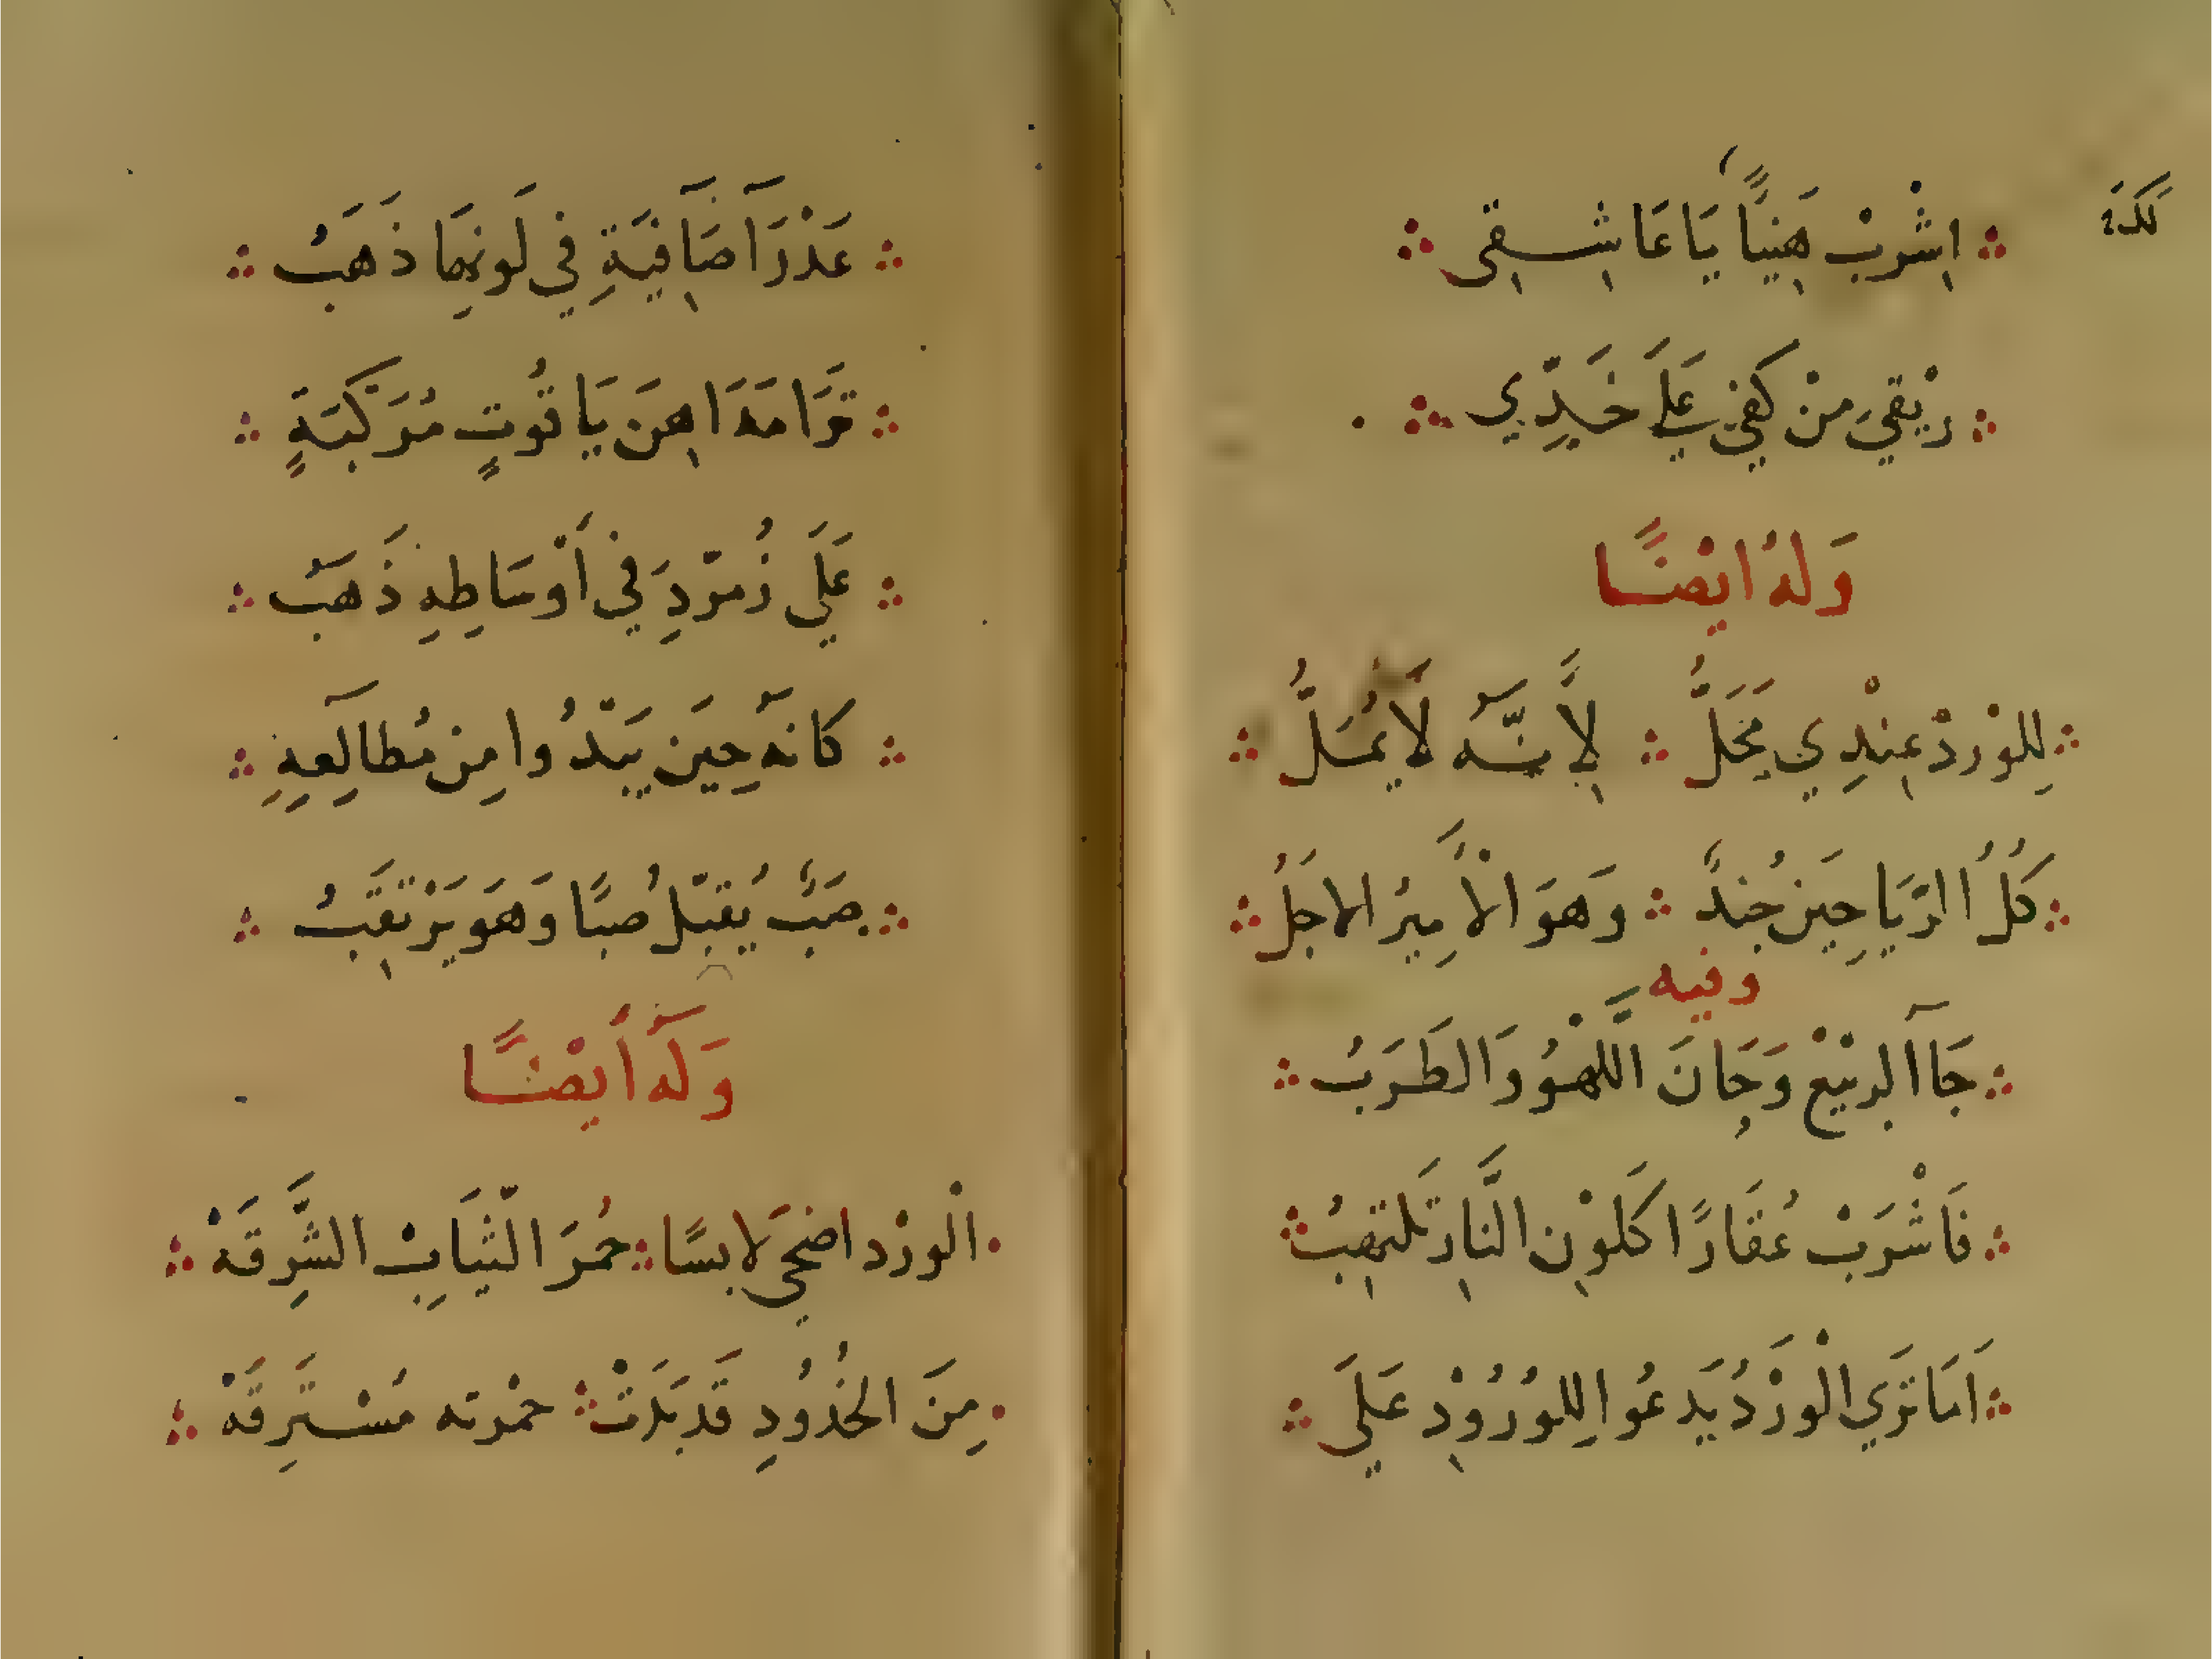 اِشْرَبْ هَنِيًّا يَا عَاشِقِى
رِيْقِيَ مِنْ كَفِيْ عَلَى خَدِّي
وَلَهُ ايْضًا
لِلوْرْدْ عِنْدِي مَحَلُّ لِأَنَّهُ لَا يُمَلُّ
كُلُ الرَّيَاحِيَنِ جُندٌ وَهوَ الأَمِيرُ الاجَلُ
وفيه
جَاآ الربيْعْ وَحَانَ اللَّهْوُ وَالطَرَبُ
فَاشْرَبْ عُقَارًا كَلَوْنِ النَّارِ تَلتَهِبُ
اَمَا تَرَي الْورْدُ يَدعُوا لِلوُرُوْدِ عَلَى
عَذْرَآ صَافِيَةٍ فِي لَونِهَا ذَهَبُ
مِن يَاقُوتٍ مُرَكبَةٍ
عَلَي زُمرّدِ فِي أَوْسَاطِهِ ذَهَبُ
كَانهُ حِيَن يَبْدُوا مِن مُطَالِعِهِ
صَبٌّ يُقبّلُ صَبًّا وَهوَ يَرْتَقِبُ
وَلَهُ أَيْضًا
الْورْد اضحَي لابسًا حُمرَ الثّيَابِ الشَّرِقَهْ
مِنَ الخُدُودِ قَد بَدَتْ حمْرته مُسْتَرِقَهْ